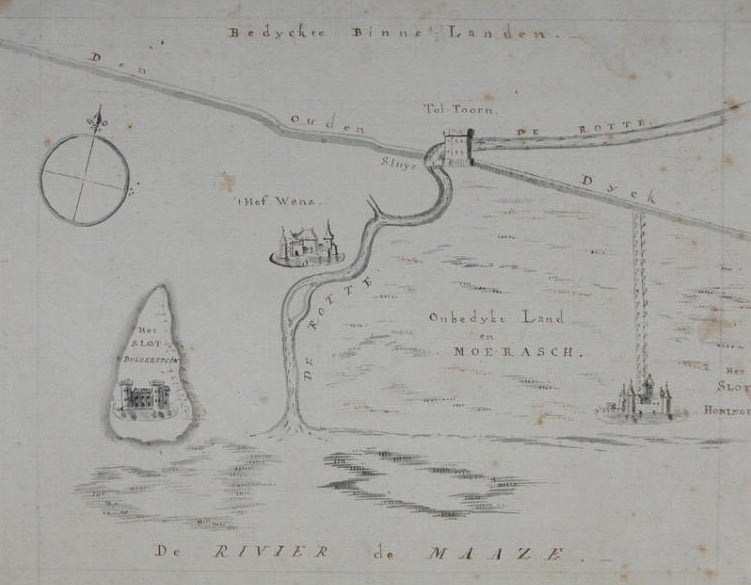 Bedyckte Binne Landen.
Den Ouden Dyck
Tol-Toorn.
DE ROTTE.
Sluys
't Hof Wena.
DE ROTTE
Onbedykt Land
en
MOERASCH.
Het
SLOT
Het
SLOT
De RIVIER de MAAZE.